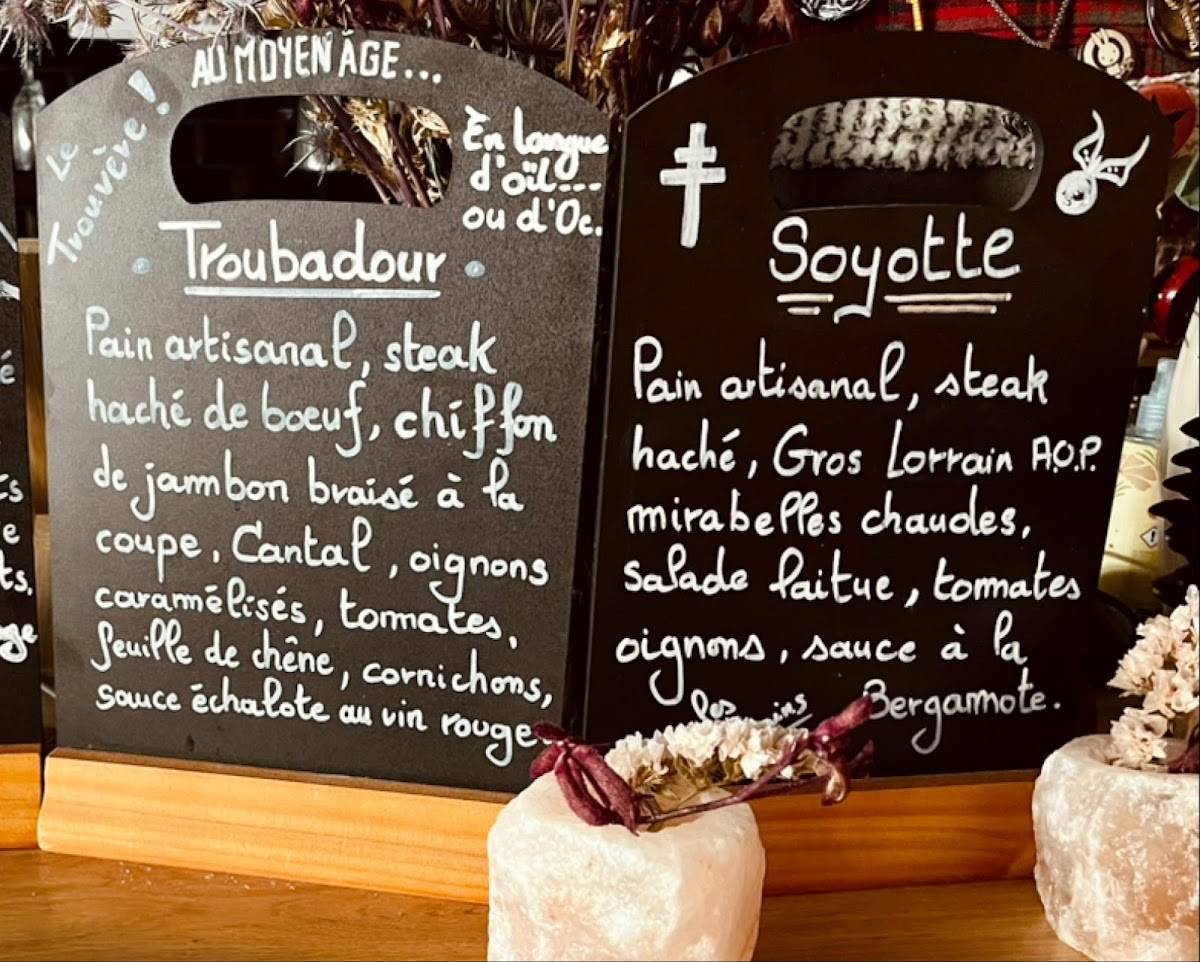 AU MOYEN ÂGE...
Le
Trouvère !
En Langue
d'oïl---
ou d'Oc.
Troubadour
Pain artisanal, steak
haché de boeuf, chiffon
de jambon braisé à la
coupe, Cantal, oignons
caramélisés, tomates,
feuille de chêne, cornichons,
sauce échalote au vin rouge
Soyotte
Pain artisanal, steak
haché, Gros Lorrain A.O.P.
mirabelles chaudes,
salade laitue, tomates
oignons, sauce à la
Bergamote.